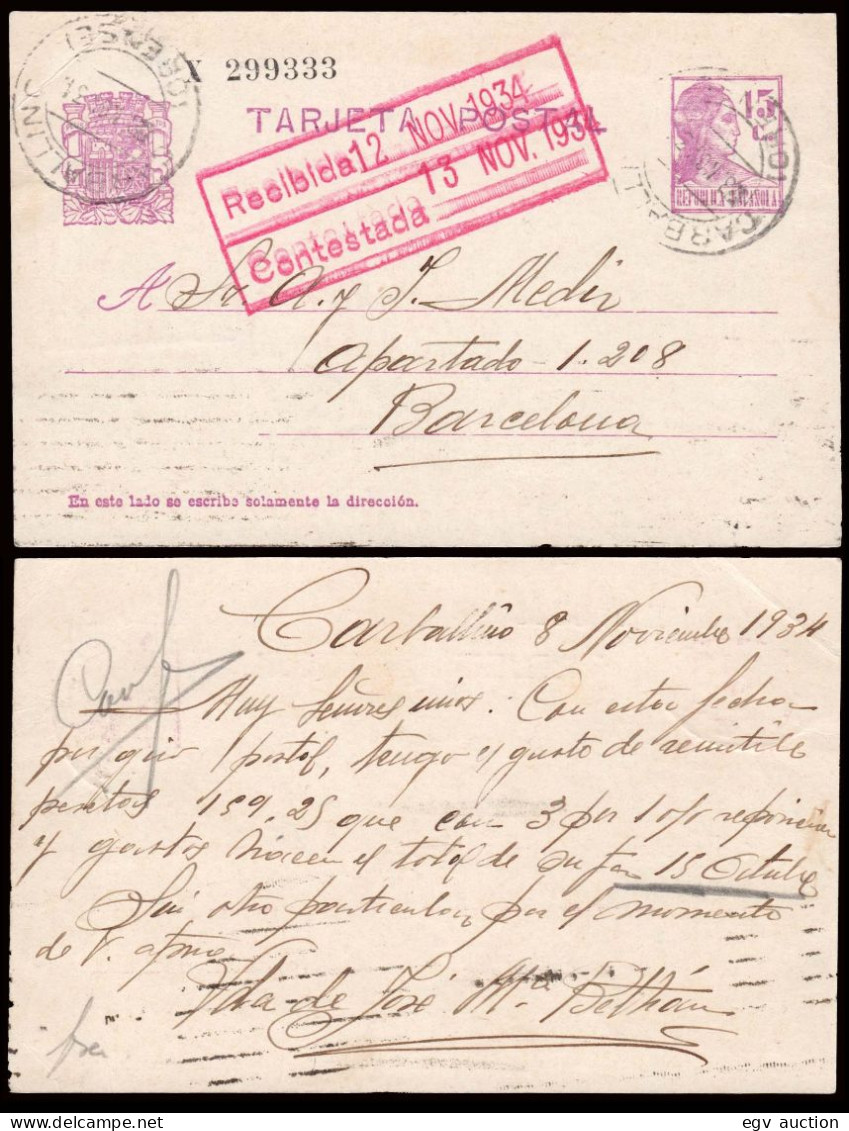 X 299333
TARJETA POSTAL
15 c
REPUBLICA ESPAÑOLA
Recibida 12 NOV. 1934
Contestada 13 NOV. 1934
A Sr. A. y J. Medir
Apartado - 1.208
Barcelona
En este lado se escribe solamente la dirección.
Carballiño 8 Noviembre 1934
Muy Señores mios: Con esta fecha
por giro postal, tengo el gusto de remitirle
pesetas 159,25 que con 3 por %
y gastos hacen el total de su 15 Octubre
Sin otro particular por el momento
de V.
Vda de José Mª Beltrán
egv auction